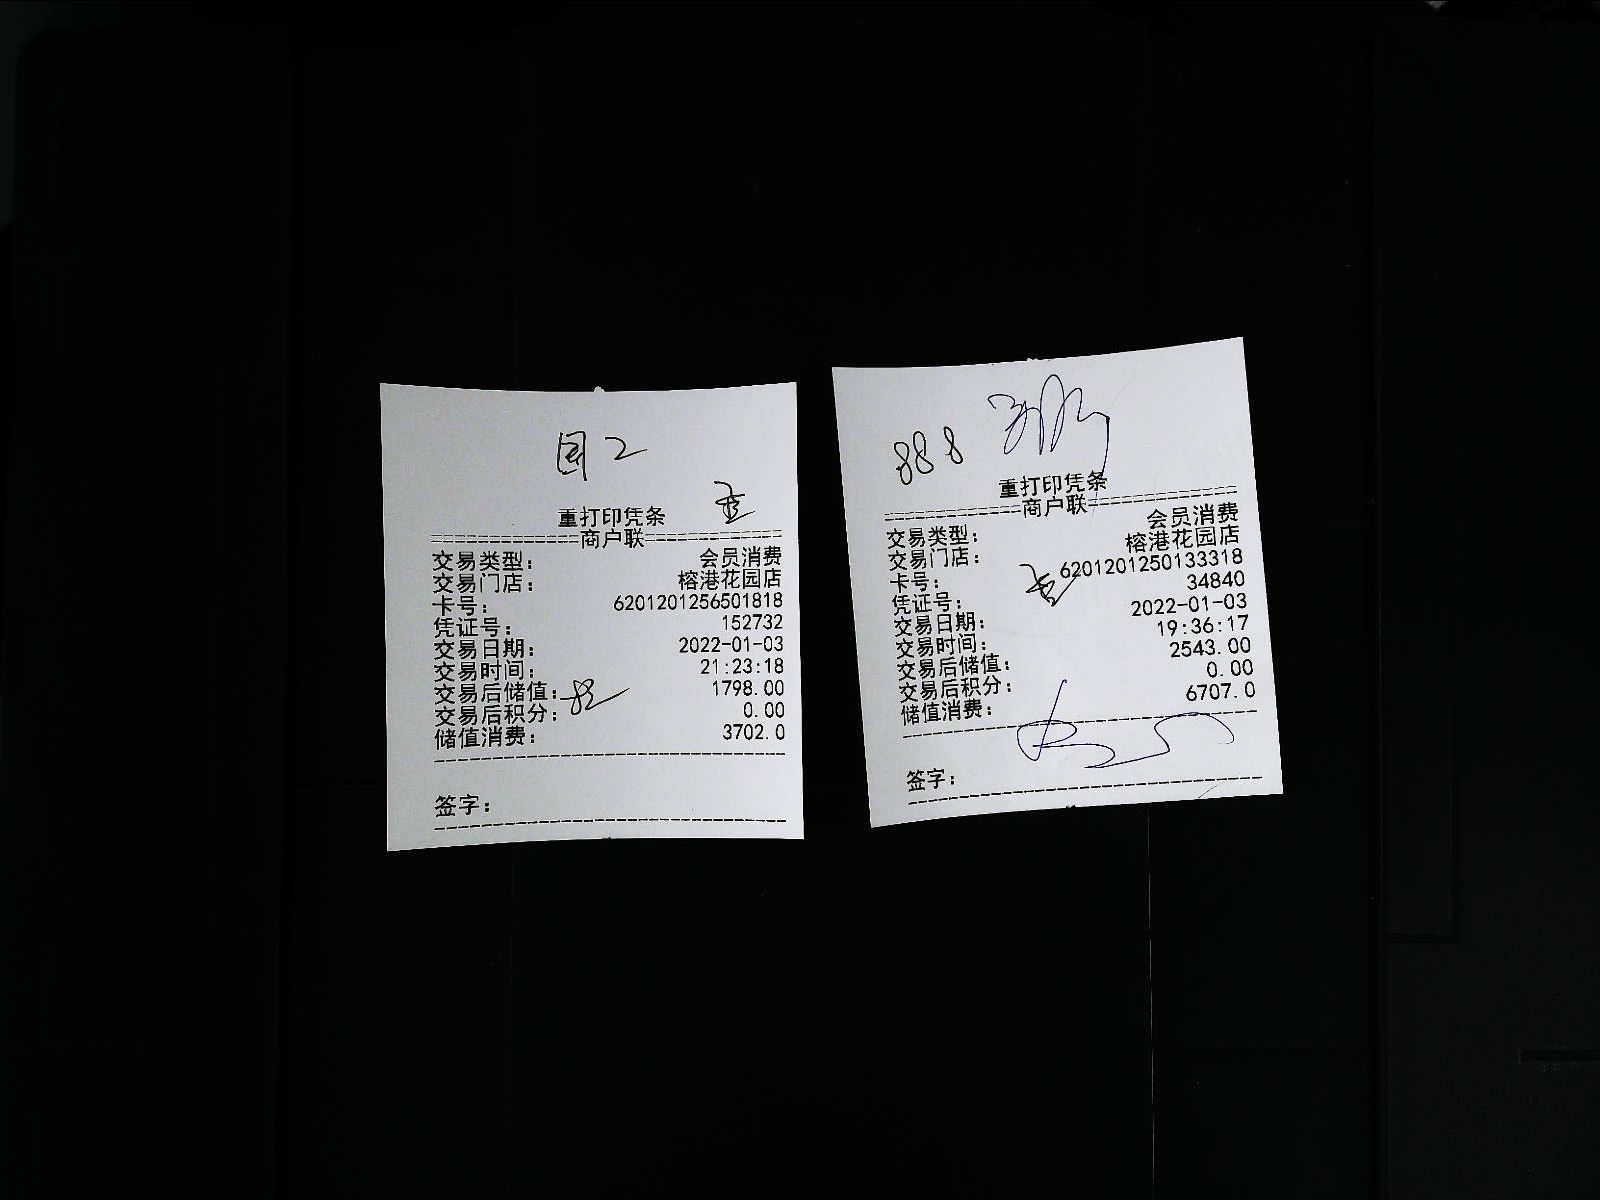 国2
重打印凭条
============商户联============
交易类型: 会员消费
交易门店: 榕港花园店
卡号: 6201201256501818
凭证号: 152732
交易日期: 2022-01-03
交易时间: 21:23:18
交易后储值: 1798.00
交易后积分: 0.00
储值消费: 3702.0
签字:
888
重打印凭条
============商户联============
交易类型: 会员消费
交易门店: 榕港花园店
卡号: 6201201250133318
凭证号: 34840
交易日期: 2022-01-03
交易时间: 19:36:17
交易后储值: 2543.00
交易后积分: 0.00
储值消费: 6707.0
签字: